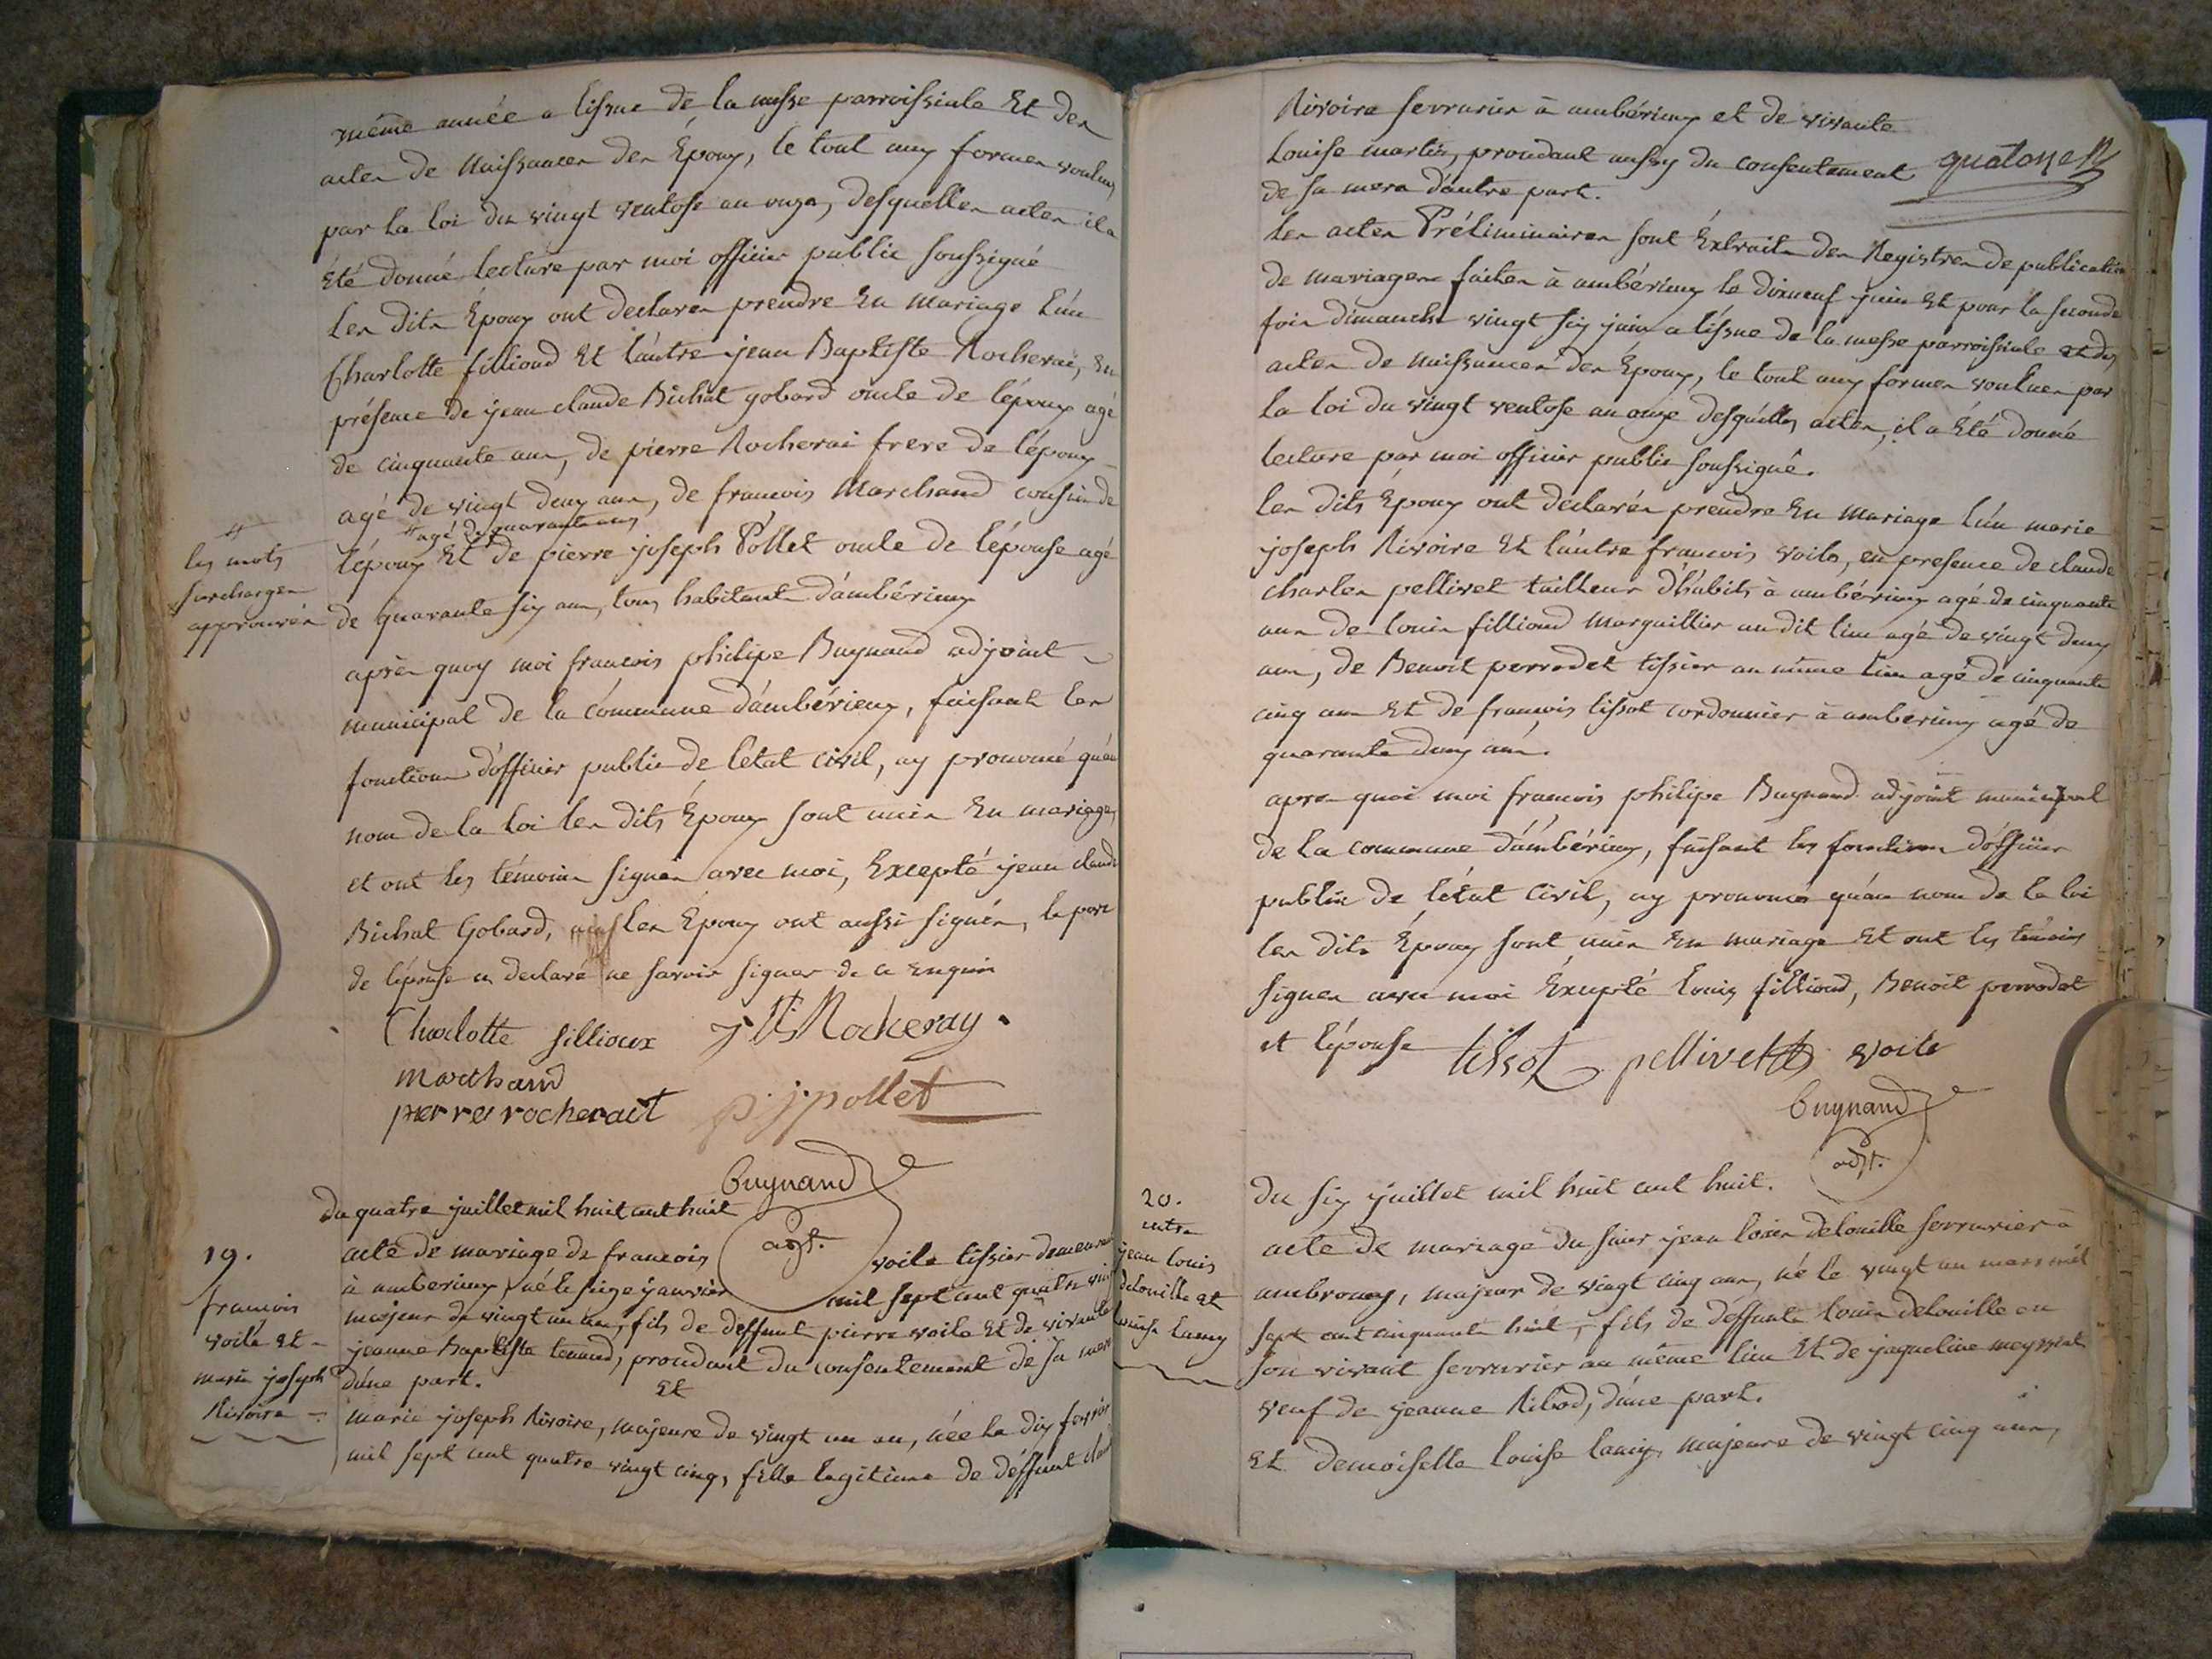 même année a lissue de la messe parroissiale Et des
actes de Naissances des Époux, le tout aux formes voulues
par la loi du vingt ventose an onze, desquelles actes il a
Été donné lecture par moi officier public soussigné
Les dits Époux ont declarés prendre En Mariage L'un
Charlotte fillioud Et l'autre jean Baptiste Rocherai, En
présence de jean claude Bichat gobard oncle de l'époux agé
de cinquante ans, de pierre Rocherai frere de l'époux
agé de vingt deux ans, de francois Marchand cousin de
agé de quarante ans
l'époux Et de pierre joseph Pollet oncle de l'épouse agé
de quarante six ans, tous habitants d'ambérieux
les mots
surcharges
approuvés
après quoy moi francois philipe Buynand adjoint
municipal de la commune d'ambérieux, faisant les
fonctions d'officier public de letat civil, ay prononcé qu'au
nom de la loi les dits Époux sont unis En mariage,
et ont les témoins signés avec moi, Excepté jean claude
Bichat Gobard, les Époux ont aussi signés, le pere
de l'épouse a declaré ne savoir signer de ce Enquis
Charlotte fillioux j Bte Rockeray.
marchand
pierre rocherait p. j. pollet
Buynand
adjt.
Du quatre juillet mil huit cent huit
19.
francois
voile Et
marie joseph
Rivoire
acte de mariage de francois voile tissier demeurant
à amberieux, né le seize janvier mil sept cent quatre vingt
majeur de vingt un an, fils de deffunt pierre voile Et de vivante
jeanne Baptiste tenand, procedant du consentement de sa mere
d'une part.
Et
marie joseph Rivoire, majeure de vingt un an, née le dix fevrier
mil sept cent quatre vingt cinq, fille legitime de deffunt
Rivoire serrurier à ambérieux et de vivante
Louise martin, procedant aussy du consentement
de sa mere d'autre part.
quatorze
Les actes Préliminaires sont Extraits des Registres de publication
de mariages faites à ambérieux le dixneuf juin Et pour la seconde
fois dimanche vingt six juin a lissue de la messe parroissiale et des
actes de naissances des Époux, le tout aux formes voulues par
la loi du vingt ventose an onze desquelles actes, il a Été donné
lecture par moi officier public soussigné.
les dits Époux ont déclarés prendre En mariage L'un marie
joseph Rivoire Et l'autre francois voile, en presence de claude
charles pellivet tailleur d'habits à ambérieux agé de cinquante
ans de louis fillioud Marguillier au dit lieu agé de vingt deux
ans, de Benoit perrodet tissier au même lieu agé de cinquante
cinq ans Et de francois tissot cordonnier à amberieux agé de
quarante deux ans.
apres quoi moi francois philipe Buynand adjoint municipal
de la commune d'ambérieux, faisant les fonctions d'officier
public de l'état civil, ay prononcé qu'au nom de la loi
les dits Époux sont unis En mariage Et ont les témoins
signés avec moi Excepté louis fillioud, Benoit perrodet
et l'épouse tissot pellivet voile
Buynand
adjt.
20.
entre
jean louis
delouille Et
louise lamy
Du six juillet mil huit cent huit.
acte de mariage du sieur jean louis delouille serrurier à
ambronay, majeur de vingt cinq ans, né le vingt un mars mil
sept cent cinquante huit, fils de deffunts louis delouille en
son vivant serrurier au même lieu Et de jaqueline
veuf de jeanne Ribod, d'une part.
Et demoiselle louise lamy, majeure de vingt cinq ans,